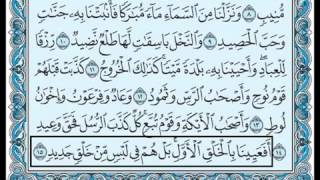 مُّنِيبٍ ٨ وَنَزَّلْنَا مِنَ ٱلسَّمَآءِ مَآءً مُّبَٰرَكًا فَأَنۢبَتْنَا بِهِۦ جَنَّٰتٍ
وَحَبَّ ٱلْحَصِيدِ ٩ وَٱلنَّخْلَ بَاسِقَٰتٍ لَّهَا طَلْعٌ نَّضِيدٌ ١٠ رِّزْقًا
لِّلْعِبَادِ وَأَحْيَيْنَا بِهِۦ بَلْدَةً مَّيْتًا كَذَٰلِكَ ٱلْخُرُوجُ ١١ كَذَّبَتْ قَبْلَهُمْ
قَوْمُ نُوحٍ وَأَصْحَٰبُ ٱلرَّسِّ وَثَمُودُ ١٢ وَعَادٌ وَفِرْعَوْنُ وَإِخْوَٰنُ
لُوطٍ ١٣ وَأَصْحَٰبُ ٱلْأَيْكَةِ وَقَوْمُ تُبَّعٍ كُلٌّ كَذَّبَ ٱلرُّسُلَ فَحَقَّ وَعِيدِ
١٤ أَفَعَيِينَا بِٱلْخَلْقِ ٱلْأَوَّلِ بَلْ هُمْ فِى لَبْسٍ مِّنْ خَلْقٍ جَدِيدٍ ١٥